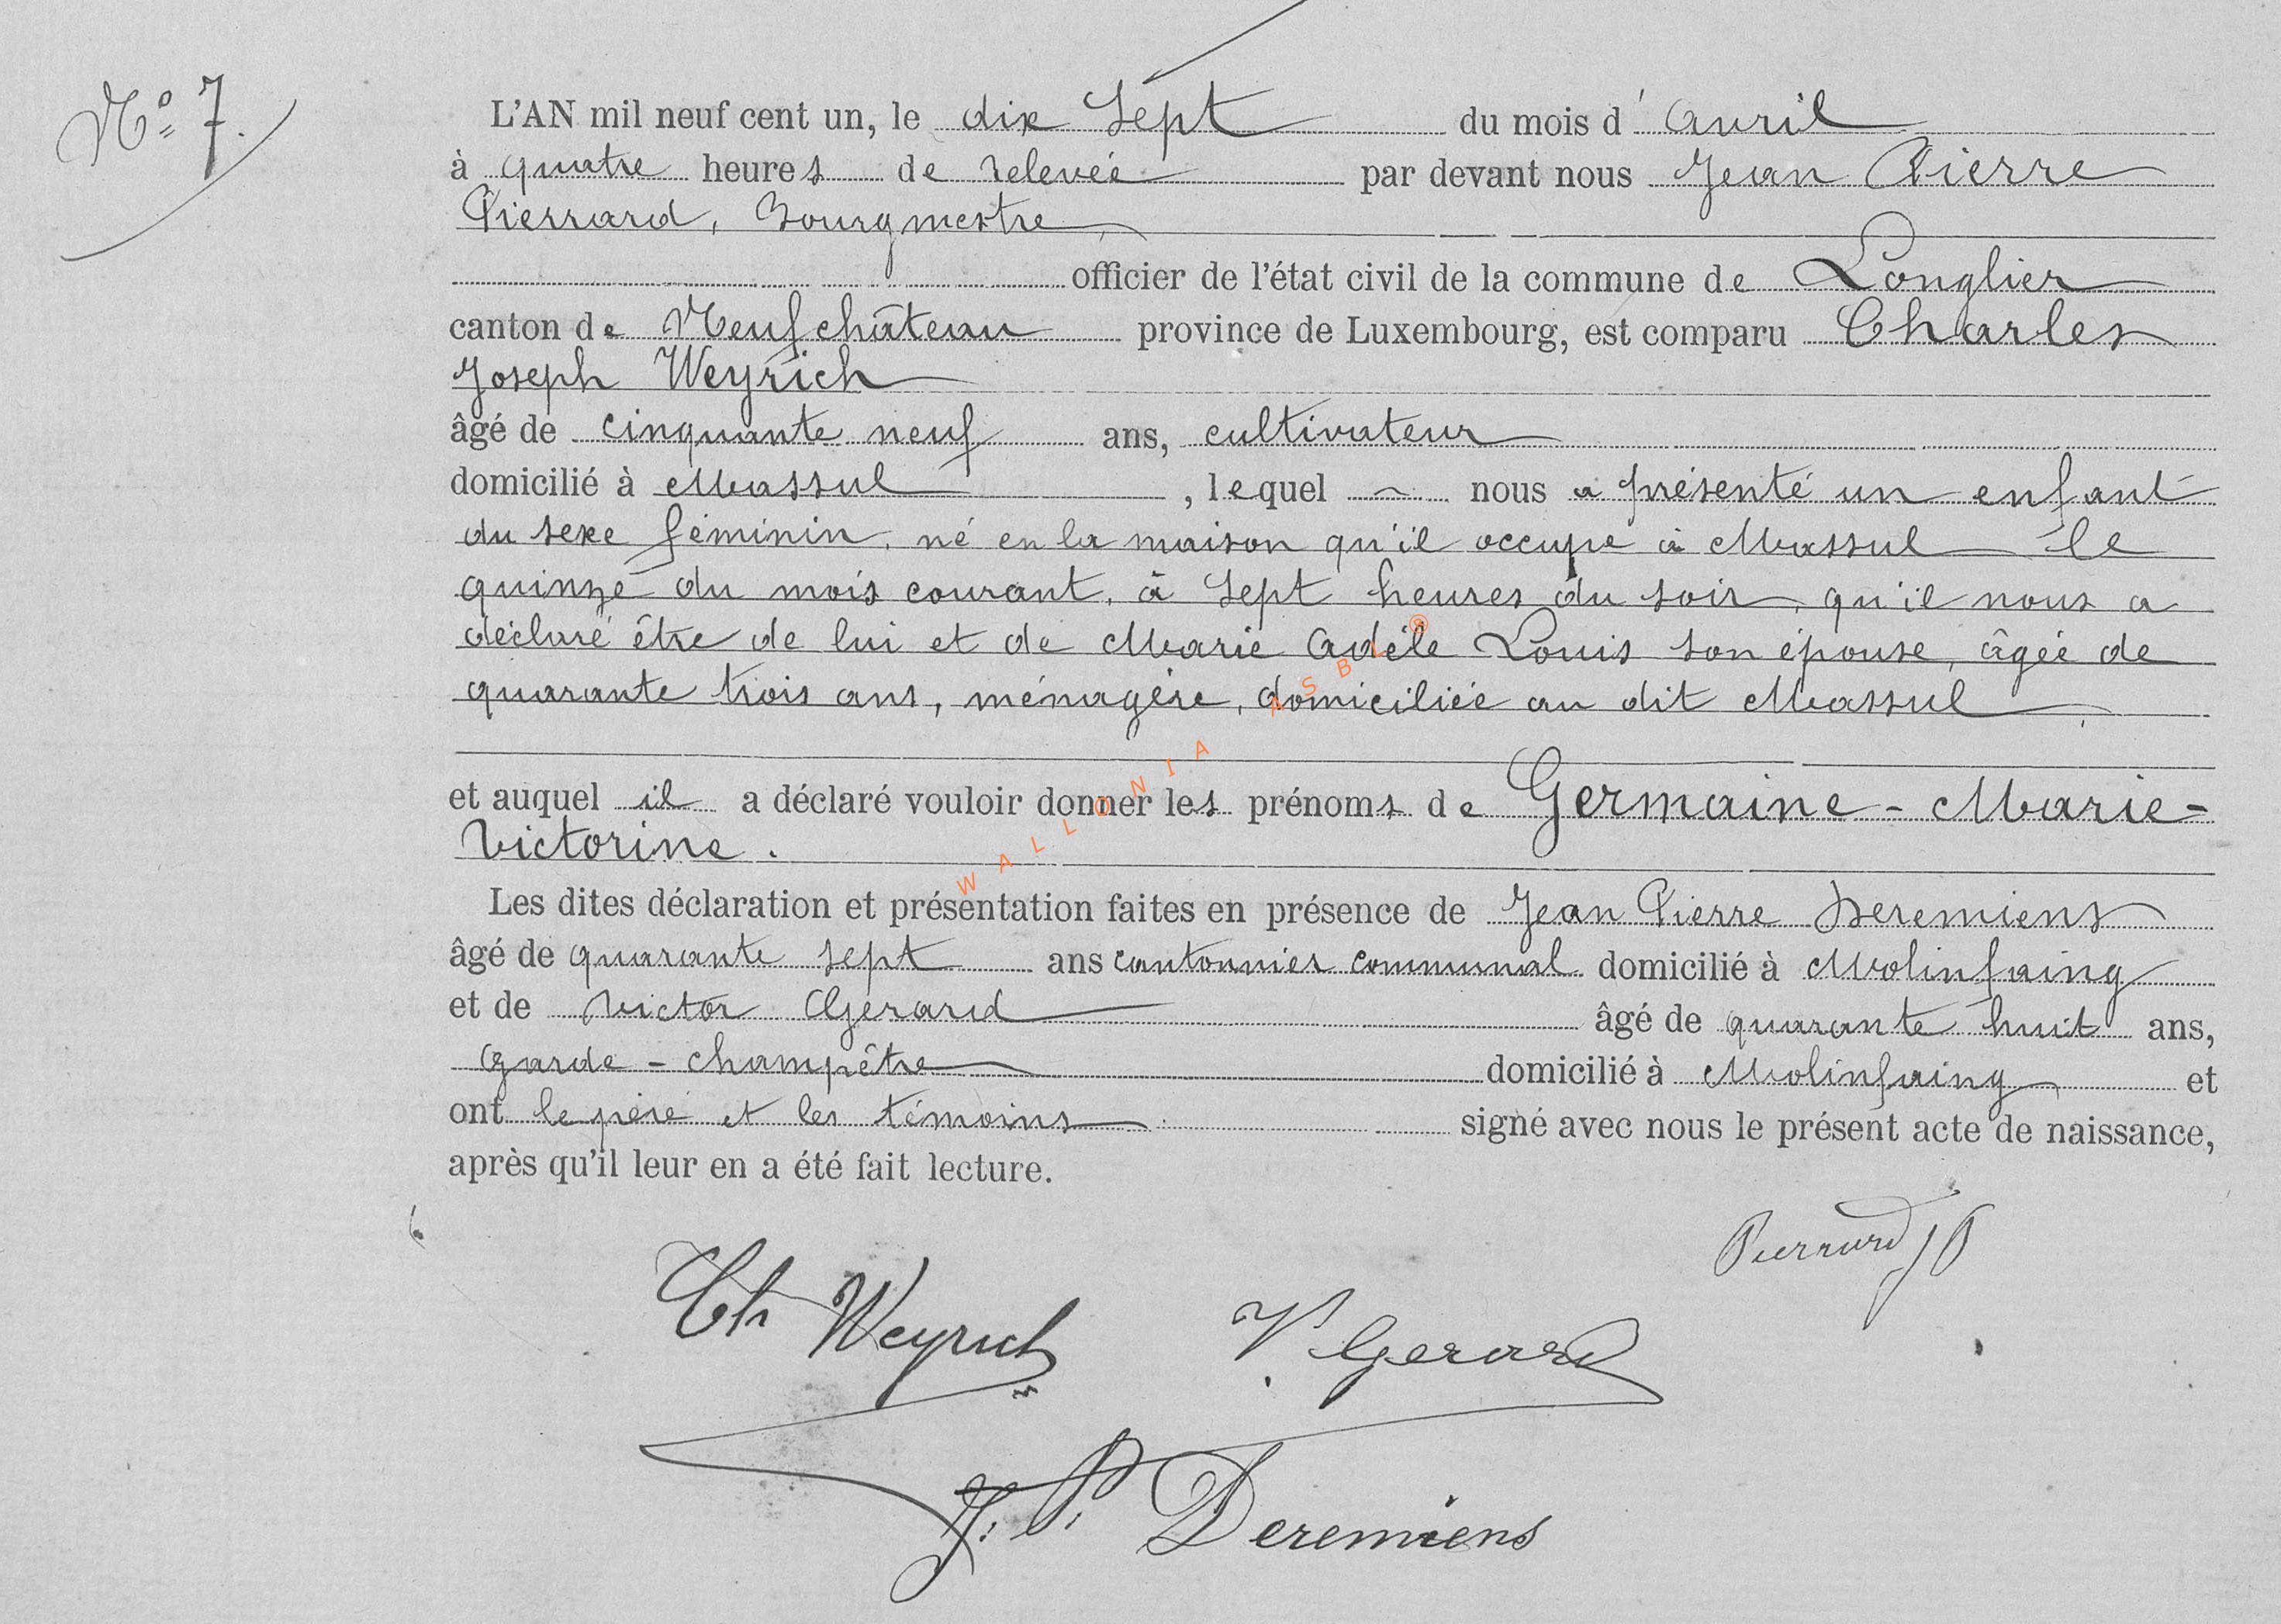 N° 7.
L'AN mil neuf cent un, le dix sept du mois d'avril
à quatre heures de relevée par devant nous Jean Pierre
Pierrard, Bourgmestre,
officier de l'état civil de la commune de Longlier
canton de Neufchâteau province de Luxembourg, est comparu Charles
Joseph Weyrich
âgé de cinquante neuf ans, cultivateur
domicilié à Massul, lequel ~ nous a présenté un enfant
du sexe féminin, né en la maison qu'il occupe à Massul le
quinze du mois courant, à sept heures du soir, qu'il nous a
déclaré être de lui et de Marie Adèle Louis son épouse, âgée de
quarante trois ans, ménagère, domiciliée au dit Massul,
et auquel il a déclaré vouloir donner les prénoms de Germaine-Marie-
Victorine.
Les dites déclaration et présentation faites en présence de Jean Pierre Deremiens
âgé de quarante sept ans cantonnier communal domicilié à Molinfaing
et de Victor Gérard âgé de quarante huit ans,
garde-champêtre domicilié à Molinfaing et
ont le père et les témoins signé avec nous le présent acte de naissance,
après qu'il leur en a été fait lecture.
Pierrard JP
Ch Weyrich V. Gerard
J. P. Deremiens
WALLONIA ASBL ®